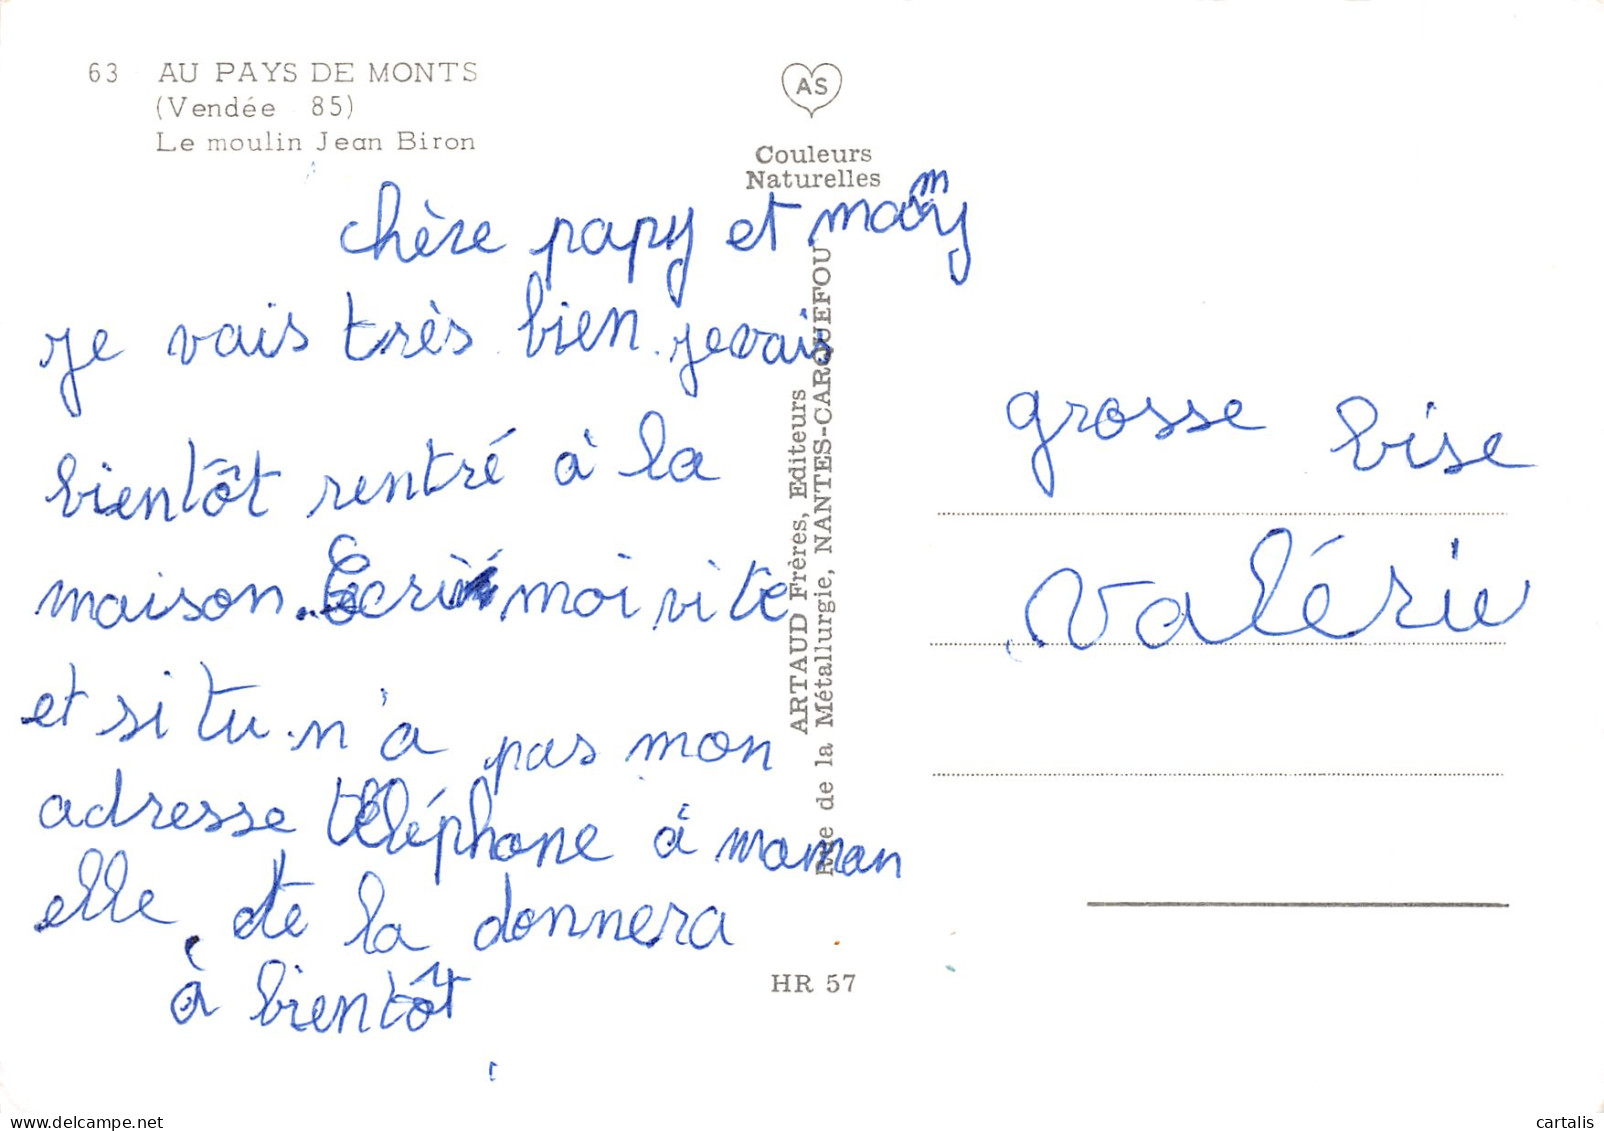 63 AU PAYS DE MONTS
(Vendée 85)
Le moulin Jean Biron
AS
Couleurs
Naturelles
chère papy et mamy
je vais très bien. je vais
bientôt rentré à la
maison. Ecri moi vite
et si tu n'a pas mon
adresse téléphone à maman
elle te la donnera
à bientôt
ARTAUD Frères, Editeurs
Rue de la Métallurgie, NANTES-CARQUEFOU
grosse bise
Valérie
HR 57
www.delcampe.net
cartalis